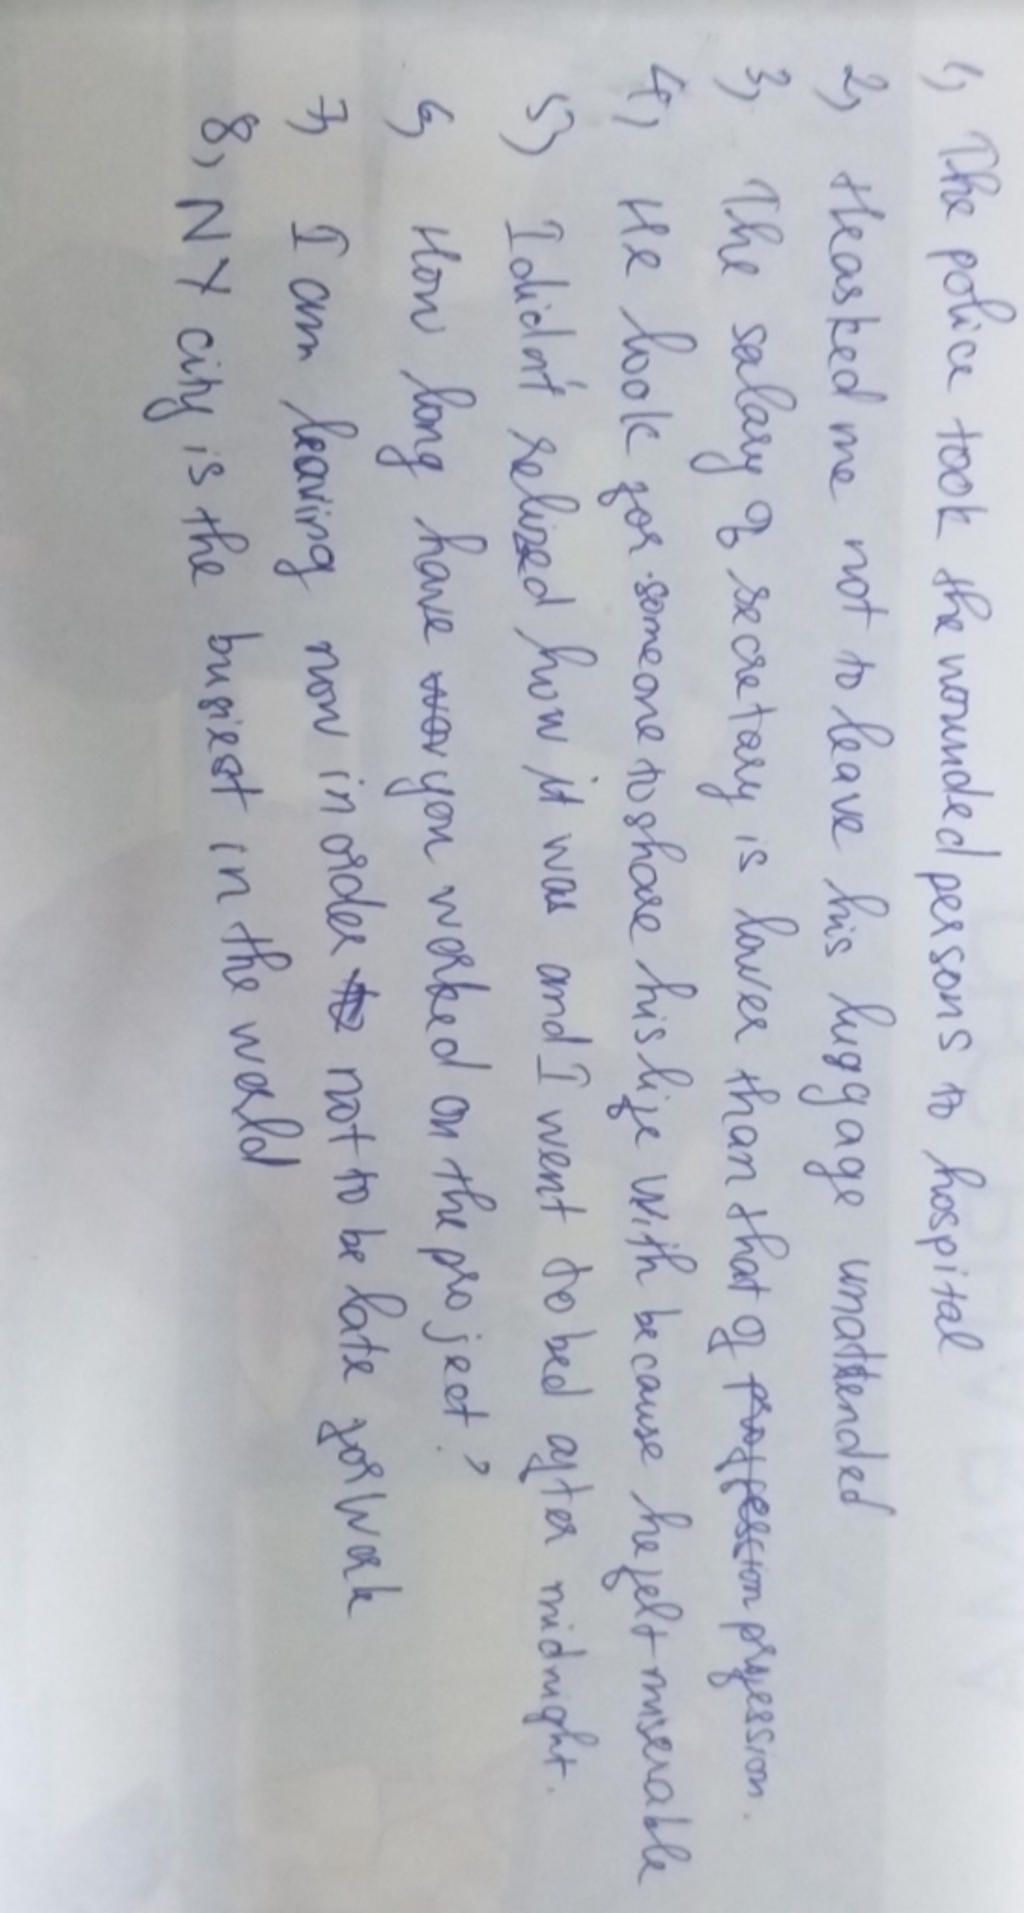 1, The police took the wounded persons to hospital
2, He asked me not to leave his luggage unattended
3, The salary of secretary is lower than that of profession profession.
4, He look for someone to share his life with because he felt miserable
5, I didn't relized how it was and I went to bed after midnight.
6, How long have wor you worked on the project?
7, I am leaving now in order to not to be late for work
8, NY city is the busiest in the world